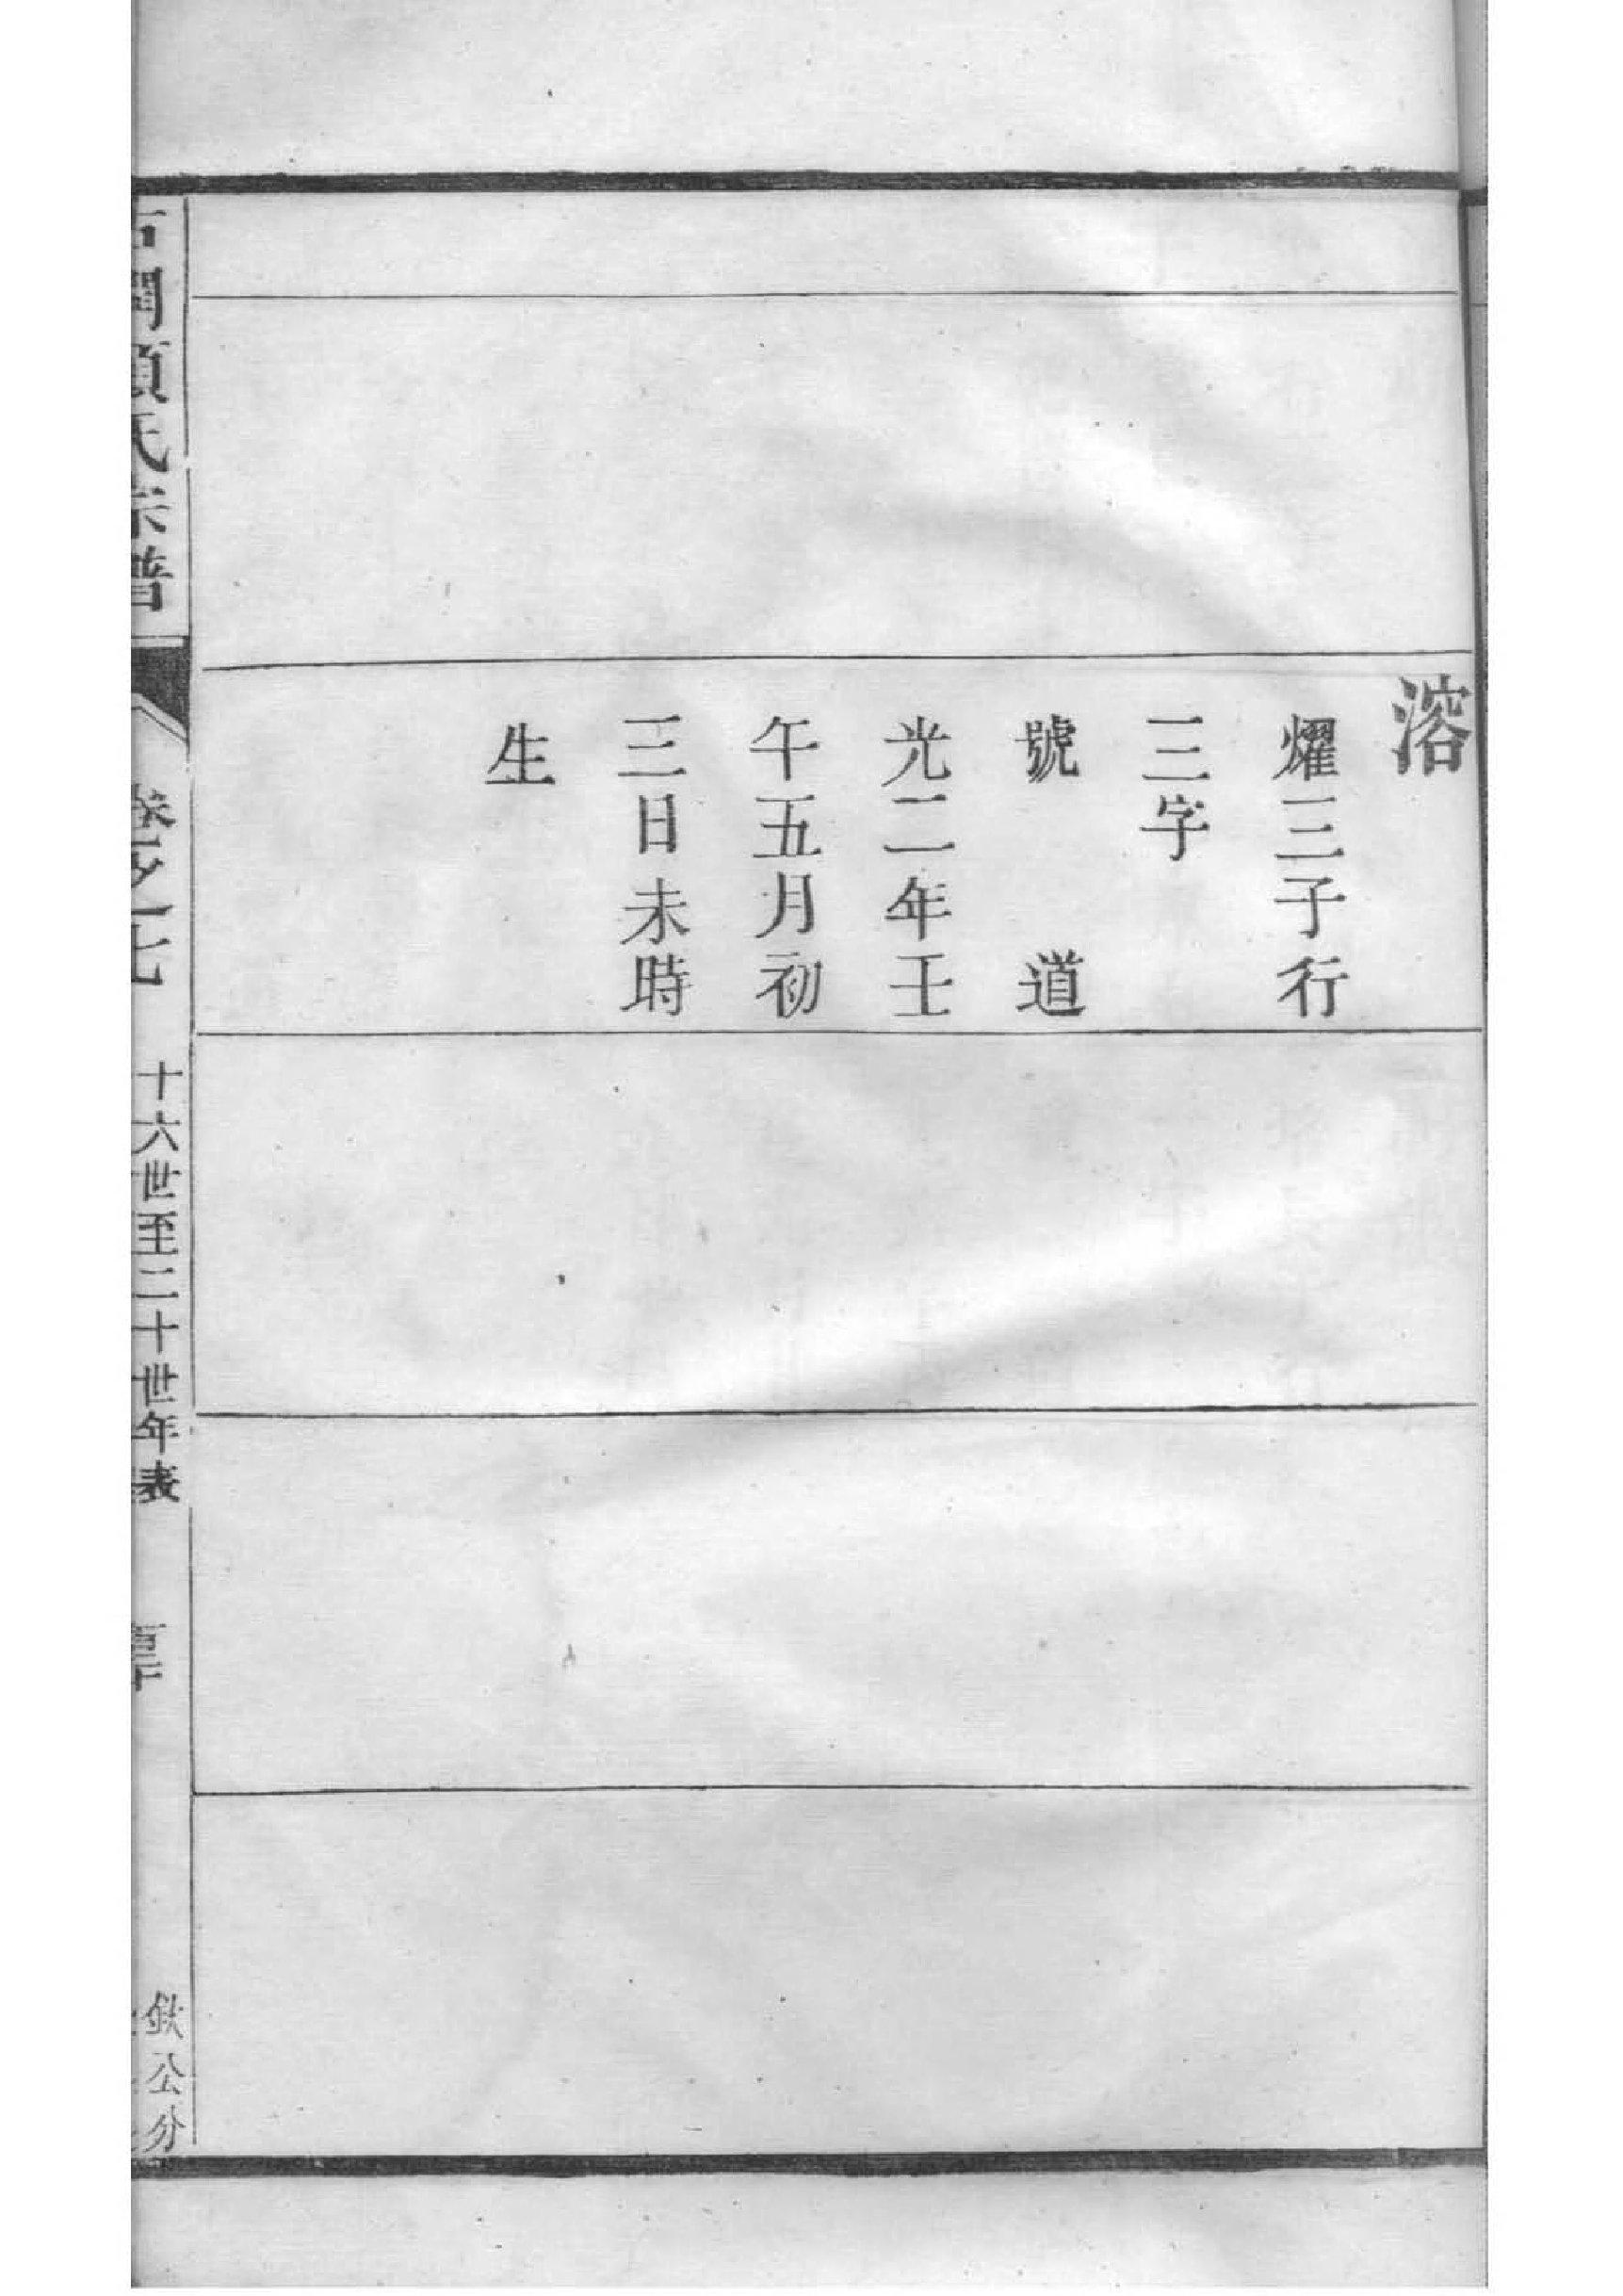 溶
燿三子行
三字
號 道
光二年壬
午五月初
三日未時
生
氏宗譜
卷之十七
十六世至二十世年表
公分